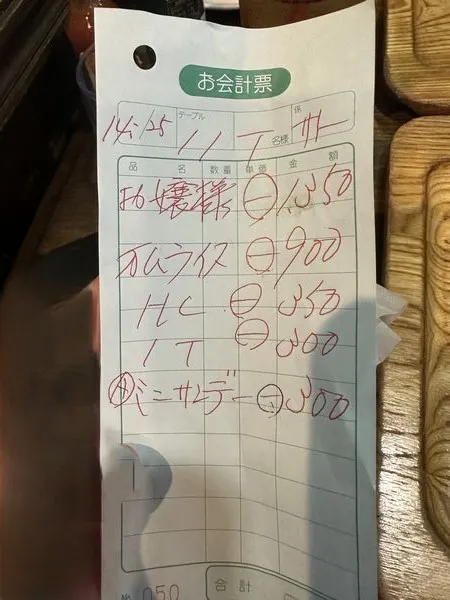 お会計票
14:25 テーブル 11 T 名様 係 サト
品名 数量 単価 金額
お嬢様 ㊀ 1,350
オムライス ㊀ 900
HC ㊀ 350
IT ㊀ 300
ミニサンデー ㊀ 300
合計
№ 050